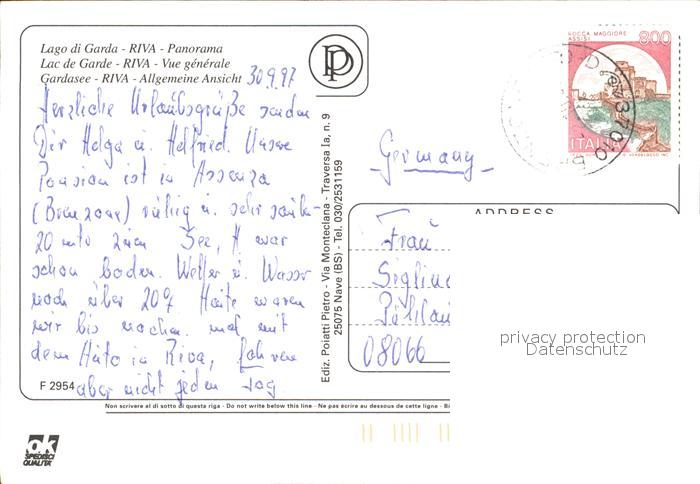 Lago di Garda - RIVA - Panorama
Lac de Garde - RIVA - Vue générale
Gardasee - RIVA - Allgemeine Ansicht
30.9.97
Herzliche Urlaubsgrüße senden
Dir Helga u. Helfried. Unsere
Pension ist in Assenza
(Brenzone) ruhig u. sehr
20 mtr zum See, H. war
schon baden. Wetter u. Wasser
noch über 20° Heute waren
wir bis mal mit
dem Auto in Riva, fahren
aber nicht jeden Tag.
F 2954
PP
Ediz. Poiatti Pietro - Via Monteclana - Traversa Ia, n. 9
25075 Nave (BS) - Tel. 030/2531159
ROCCA MAGGIORE
ASSISI
800
ITALIA
37010
Germany
ADDRESS
Frau
08066
privacy protection
Datenschutz
Non scrivere al di sotto di questa riga - Do not write below this line - Ne pas écrire au dessous de cette ligne -
ok
SPEDISCI
QUALITÀ